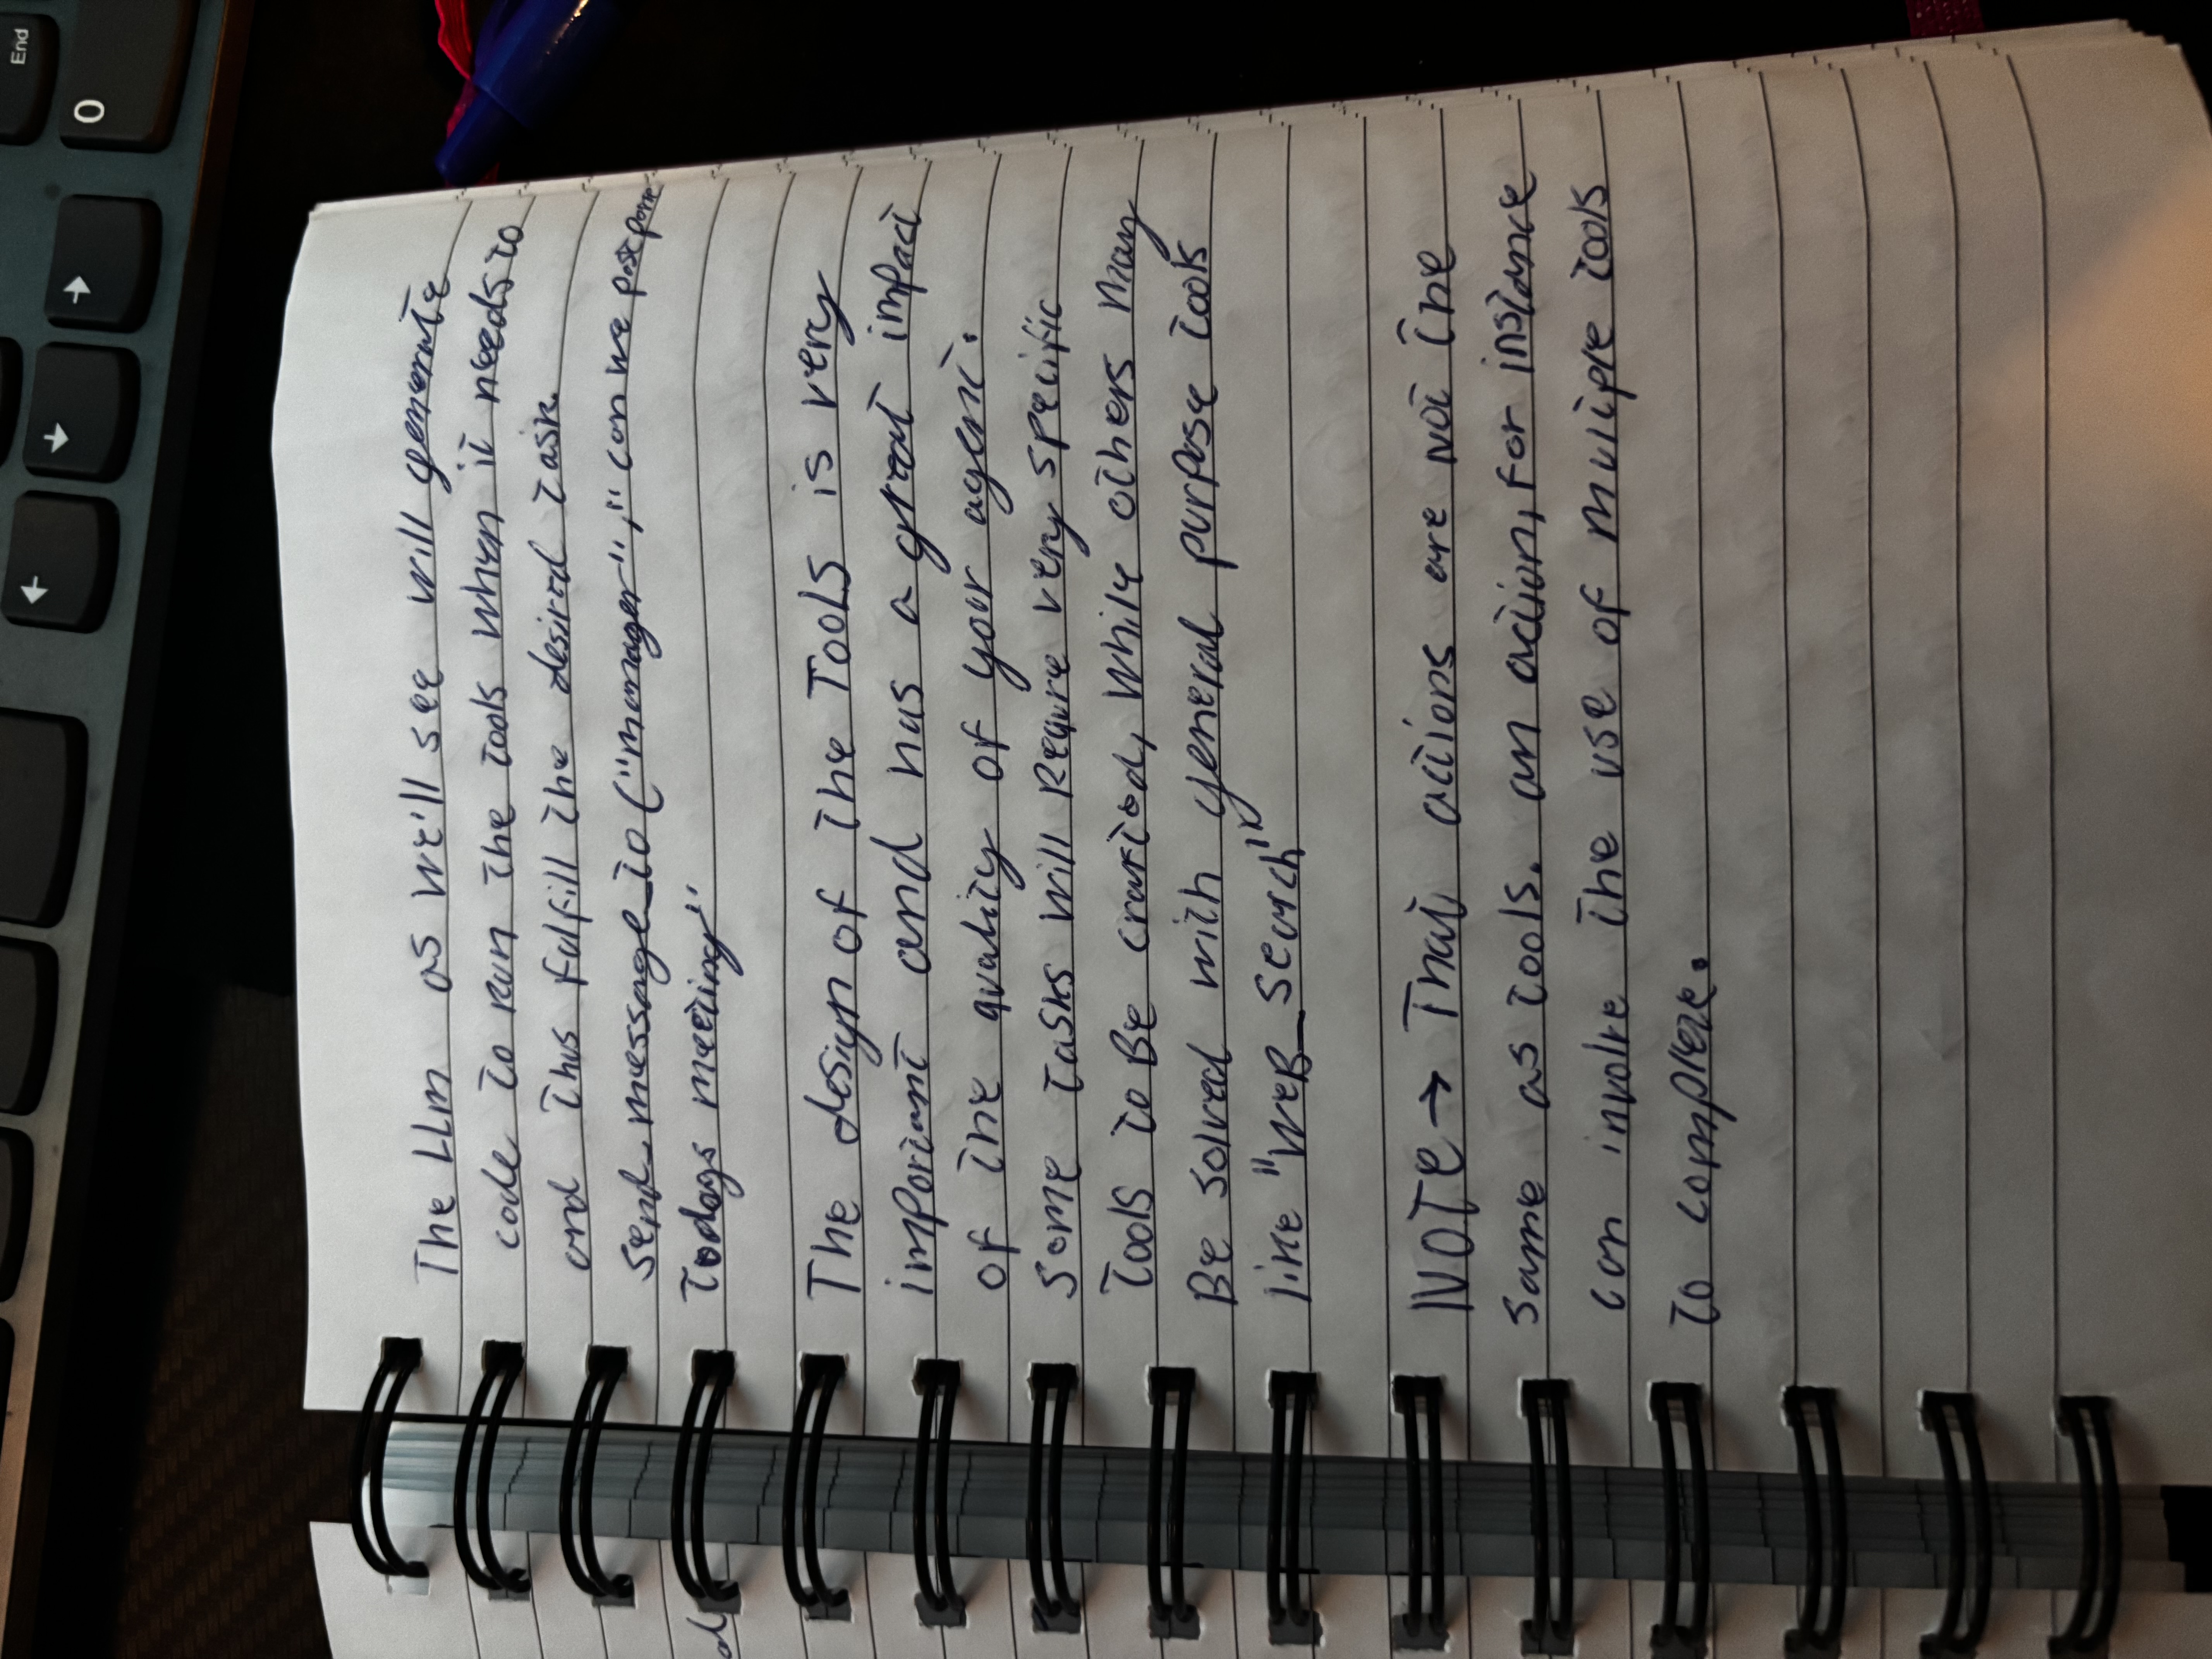 End
0
The LLm as we'll see will generate
code to run the tools when it needs to
and thus fulfill the desired task.
send_message_to ("manager"," can we postpone
todays meeting"
d
The design of the TooLS is very
important and has a great impact
of the quality of your agent.
Some tasks will Requre very specific
tools to Be crafted, while others may
Be solved with general purpose tools
like "WeB_Search"
NOTE → That actions are not the
same as tools. an action, for instance
can involve the use of multiple tools
to complete.